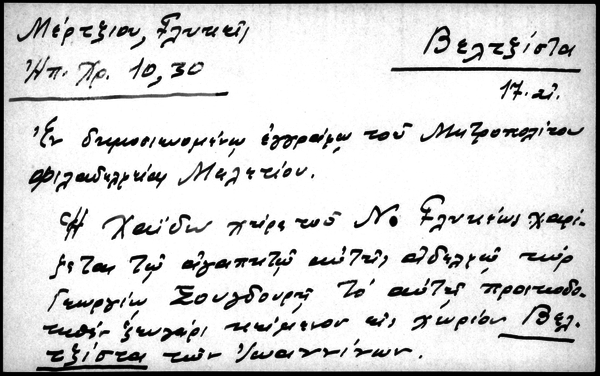 Μέρτζιου, Γλυκεῖς
Ἠπ. Χρ. 10, 30
Βελτζίστα
17. αἰ.
Ἐν δημοσιευομένῳ ἐγγράφῳ τοῦ Μητροπολίτου
Φιλαδελφείας Μελετίου.
Ἡ Χαϊδω χήρα τοῦ Ν. Γλυκέως χαρί-
ζεται τῷ ἀγαπητῷ αὐτῆς ἀδελφῷ κὺρ
Γεωργίῳ Σουγδουρῆ τὸ αὐτῆς προικοδο-
τηθὲν ζευγάρι κείμενον εἰς χωρίον Βελ-
τζίστα τῶν Ἰωαννίνων.